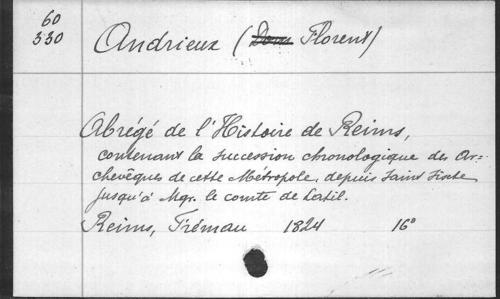 60
330
Andrieux (Dom Florent)
Abrégé de l'Histoire de Reims,
contenant la succession chronologique des Ar-
chevêques de cette Métropole, depuis Saint Sixte
jusqu'à Mgr. le comte de Latil.
Reims, Frémau 1824 16°